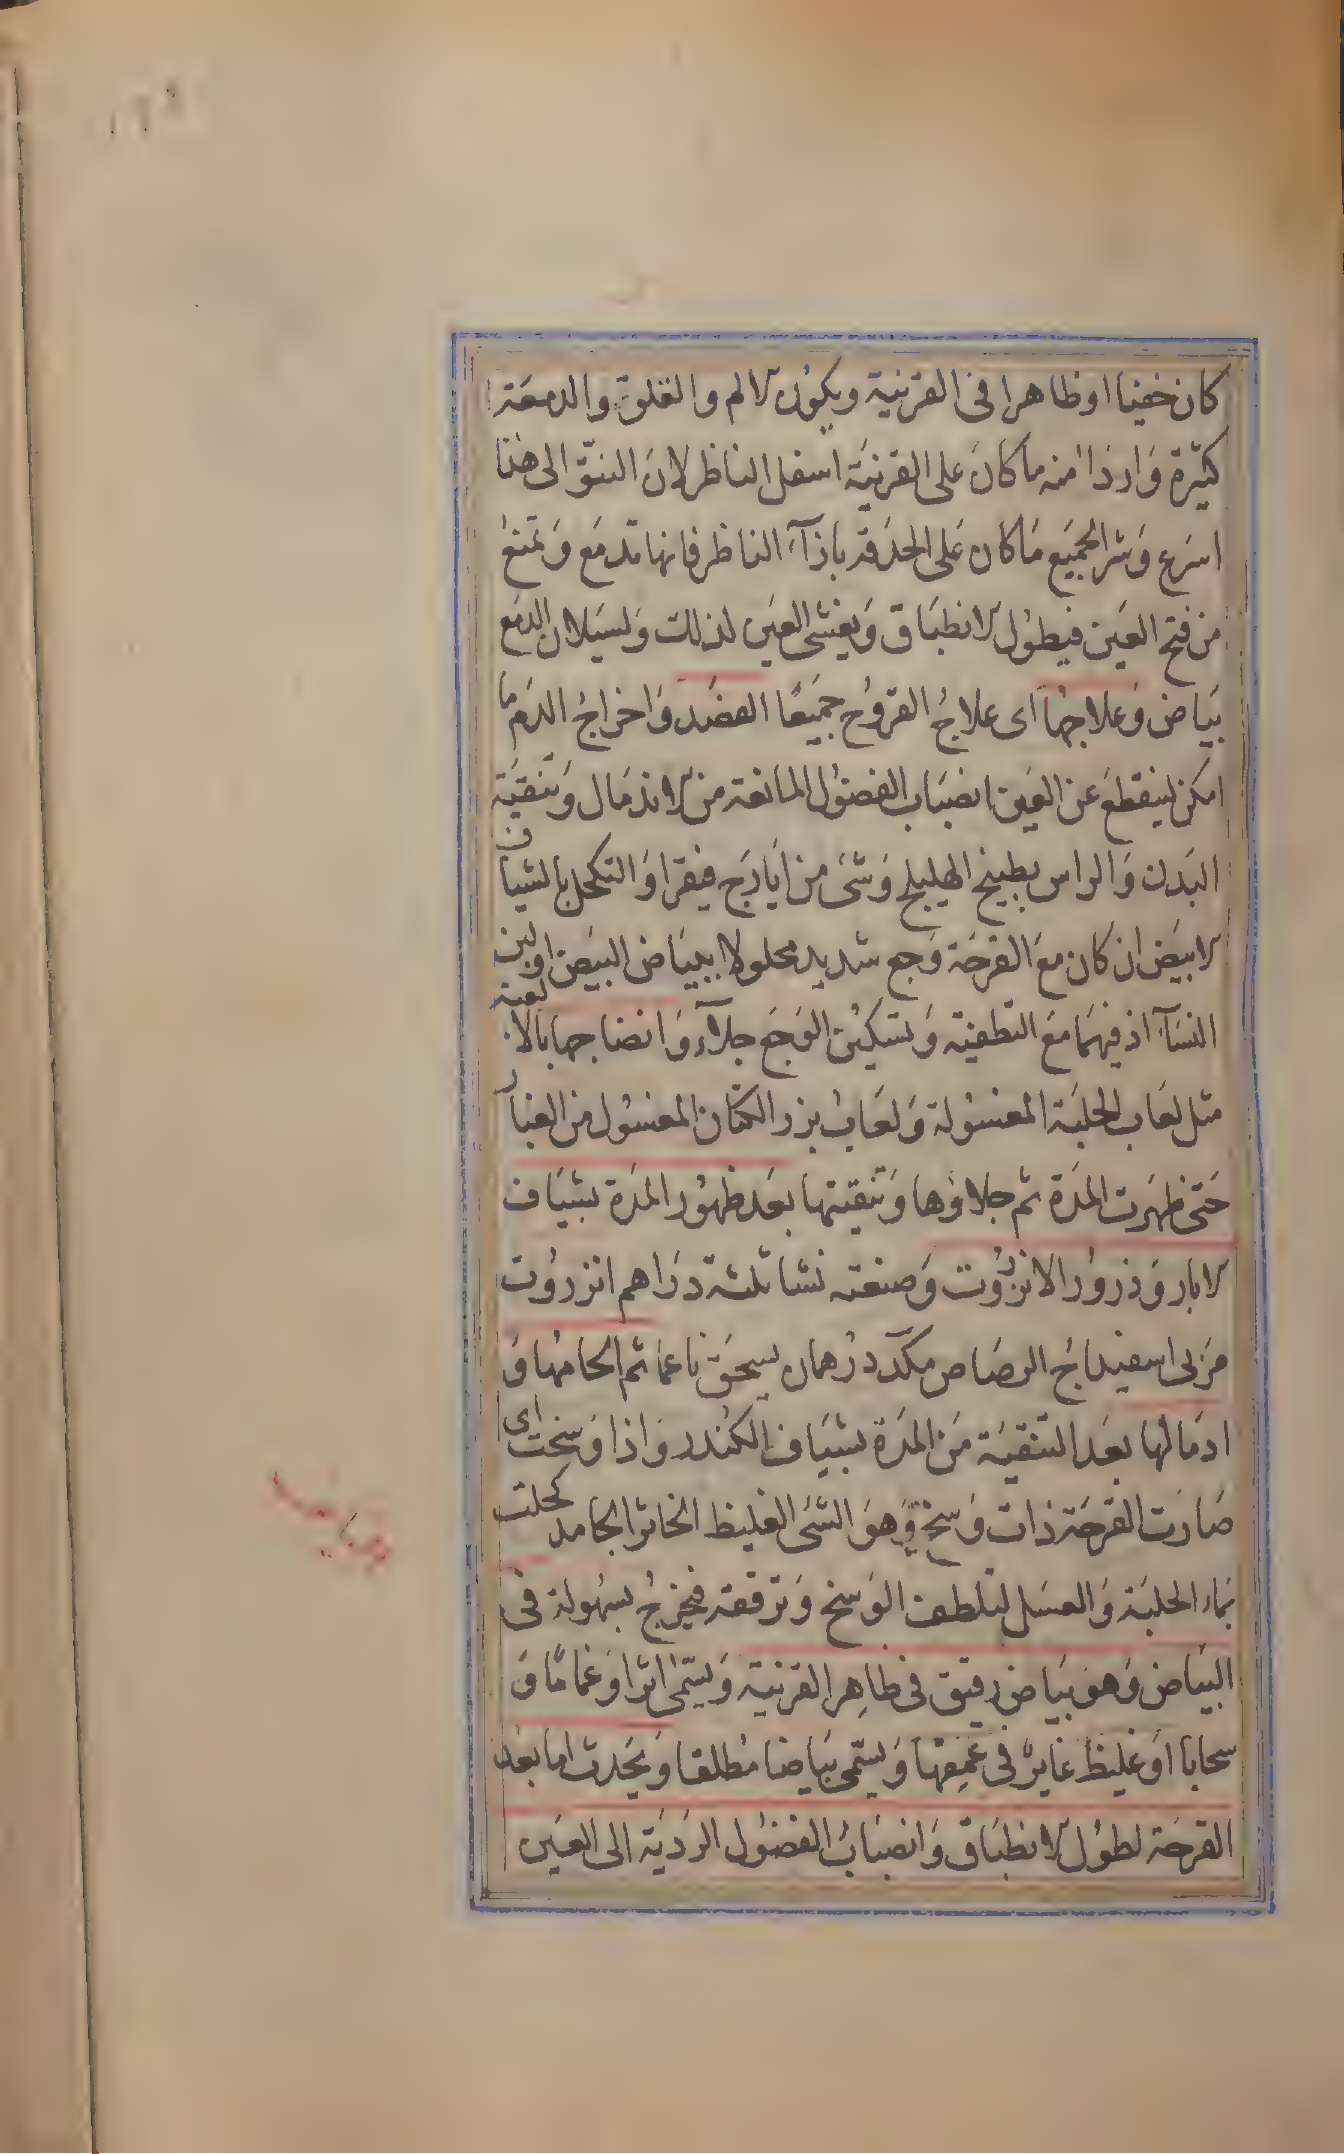 كان خفيا او ظاهرا فى القرنية ويكون الالم والقلق والدمعة
كثيرة وَاردَا منه ما كانَ على القرنيَة اسفل الناظر لانَ النتؤ الى هنا
اسرَع وَشر الجميَع مَا كان عَلى الحدَقة باذآء الناظر فانها تدمَع وَتمنع
من فتح العَين فيطوُل الانطبَاق وَيغشى العَين لذلك وَلسيَلان الدمَع
بَيَاض وَعلاجُهَا اى علاجُ القروُح جَميَعًا الفصَد وَاخراجُ الدَم ما
امكن لينقطعَ عن العَين انصبَاب الفضوُل المانعة من الاندمَال وَتنقيَة
البَدن وَالراس بطبيخ الهليلج وَشَى من ايَارَج فيقرا وَالتكحل بالشياف
الابيَض ان كان معَ القرحَة وَجع شديد محلولا ببيَاض البيَض او لبن
النسَآء اذ فيهمَا معَ التطفئة وَتسكين الوَجَع جلآء وَانضاجها بالالعبة
مثل لعَاب الحلبَة المغسوُلة وَلعَابُ بزر الكتان المغسوُل من الغبار
حَتى ظهَرت المدَة ثم جلاؤها وَتنقيتها بعَد ظهوُر المدَة بشيَاف
الابار وَذروُر الانزروُت وَصنعته نشا ثلثة دَرَاهم انزروُت
مَربى اسفيداجُ الرصَاص مكدَ درهمان يسحَق ناعما ثم الحامهُا وَ
ادمَالها بعَد التنقيَة مَن المدَة بشيَاف الكندر وَاذا وَسخت اى
صَارَت القرحَة ذات وَسخ وَهوَ الشَى الغليظ الخاثر الجامد كحلت
بمَاء الحلبَة وَالعسَل لتلطف الوَسخ وَترققه فيخرجُ بسهُولة فى
البيَاض وَهوَ بيَاض رقيق فى ظاهِر القرنيَة وَيسَمىٰ اثرا وَغمامًا وَ
سحابا اوَ غليظ غايرٌ فى عمِقهَا وَيسَمى بيَاضا مُطلقا وَيحَدث اما بعَد
القرحَة لطوُل الانطبَاق وَانصبَابُ الفضوُل الرَديَة الى العيَن